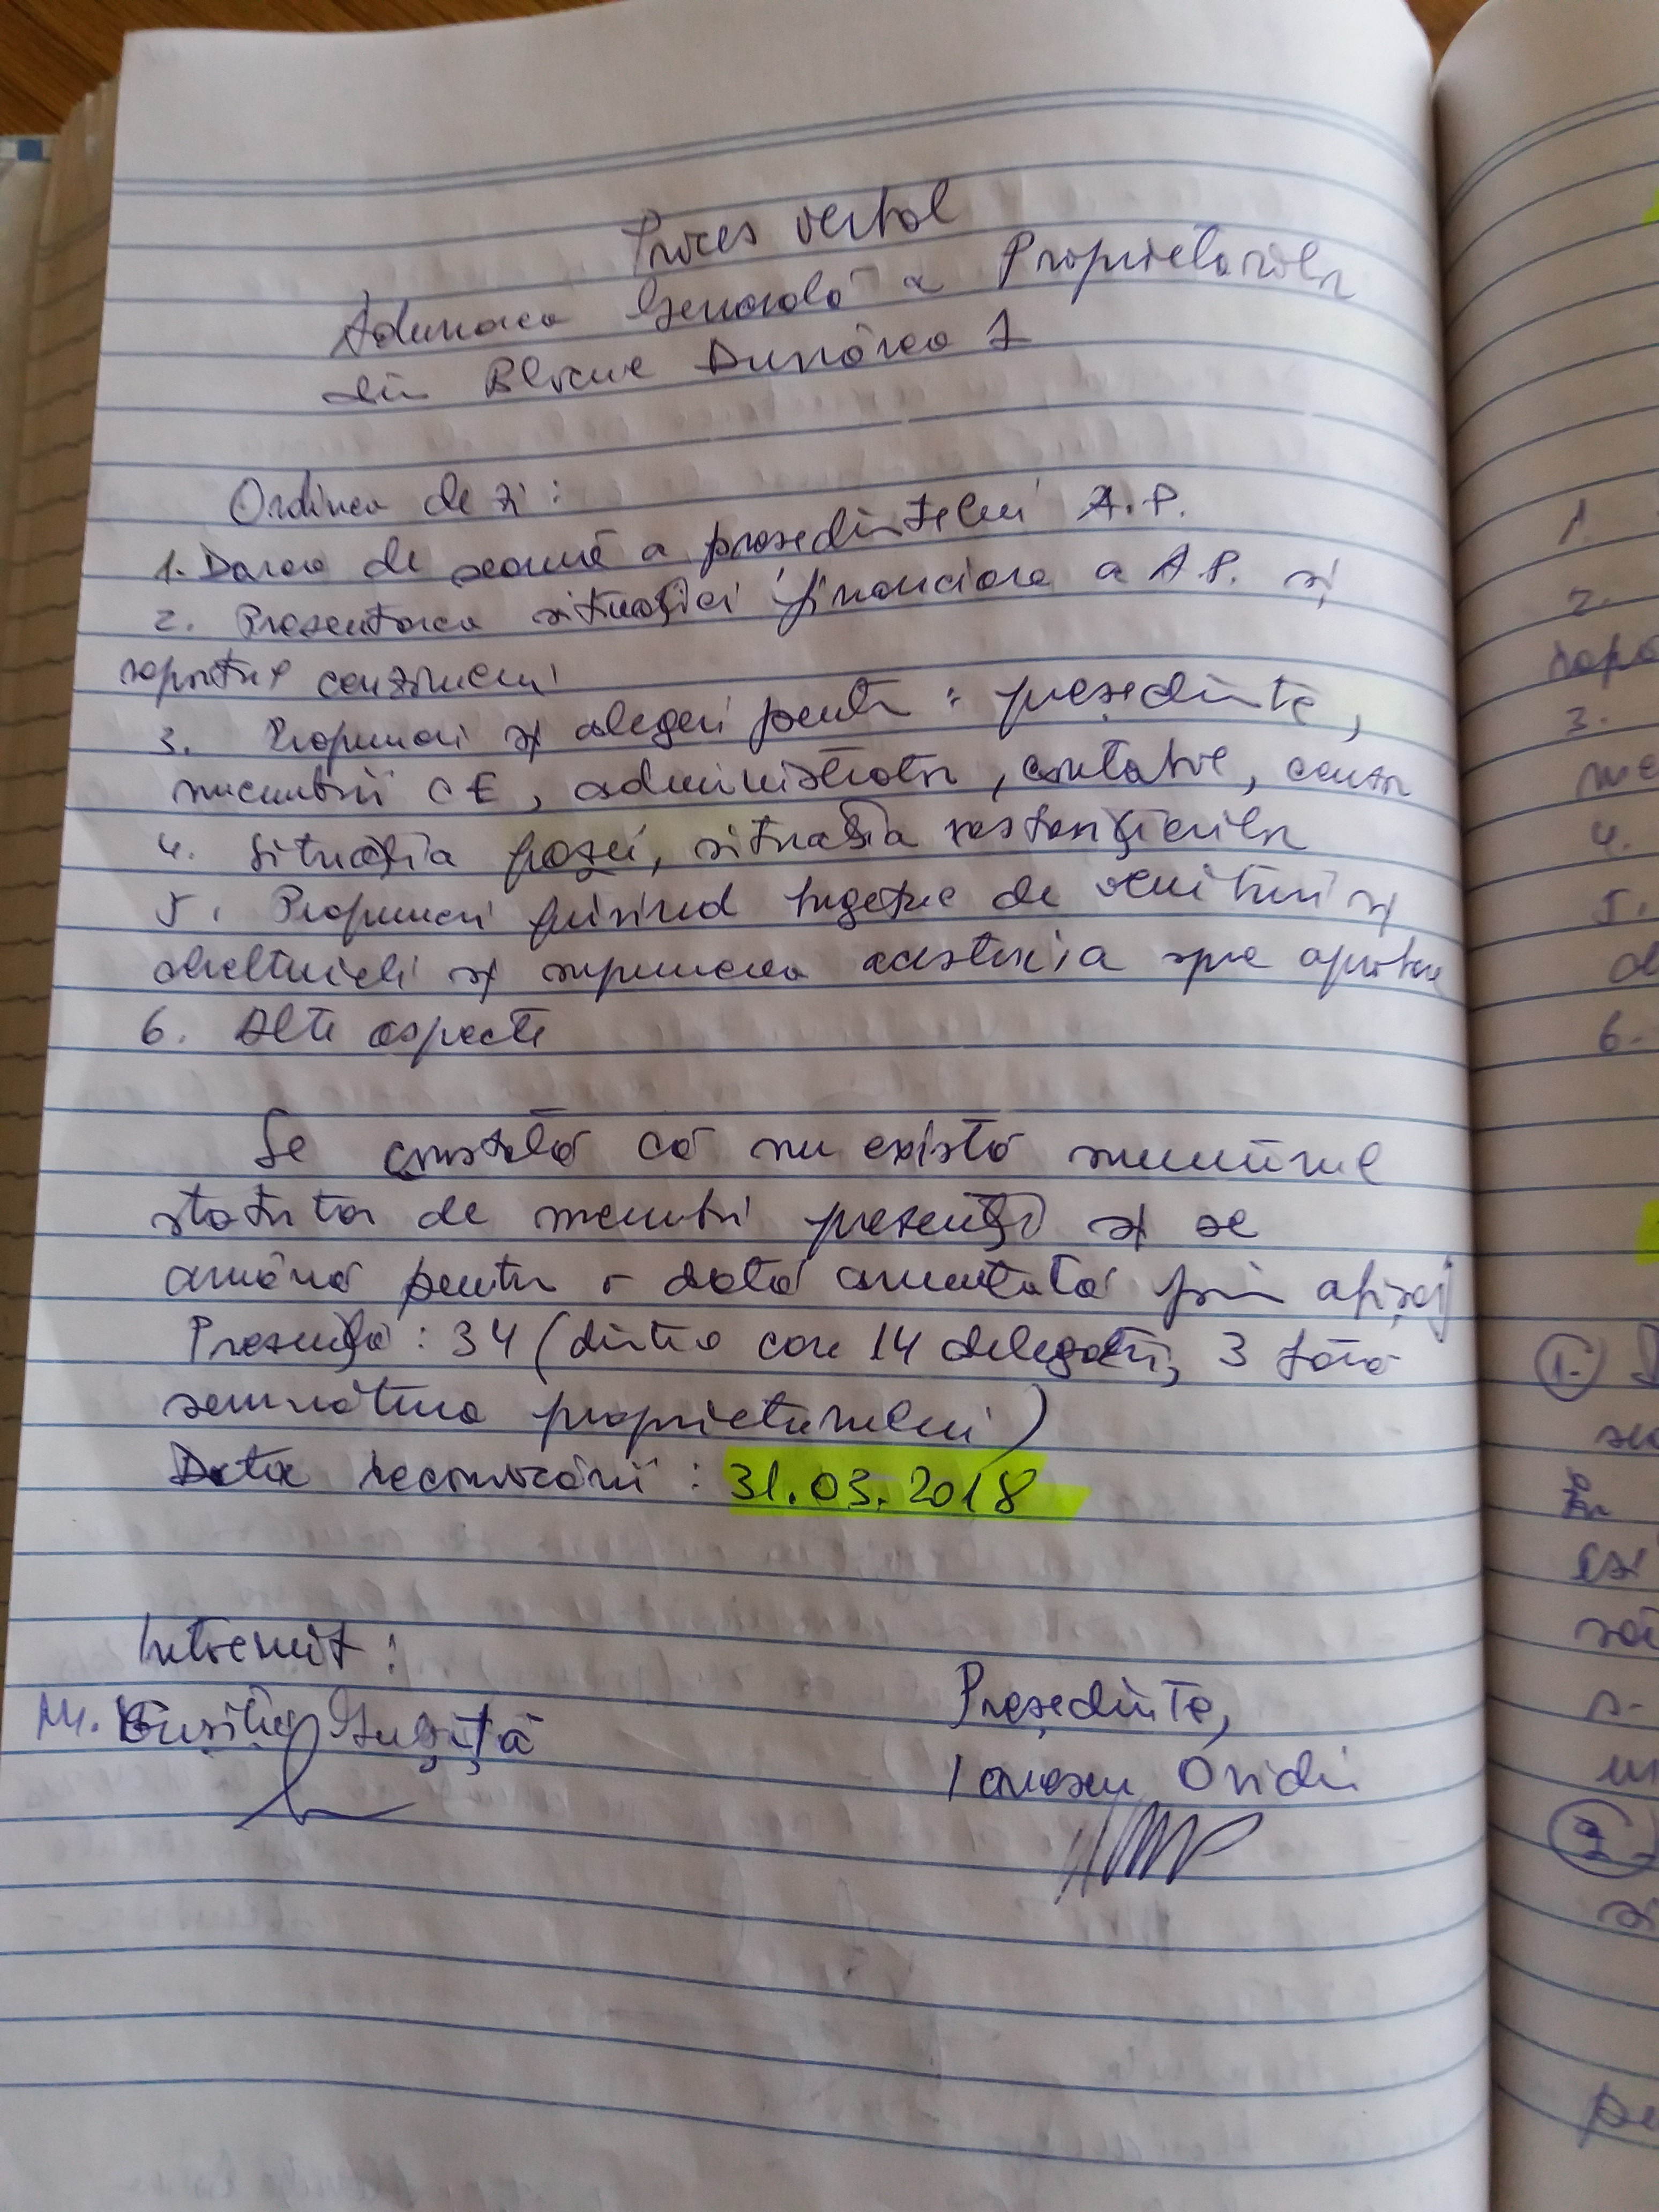 Proces verbal
Adunarea Generală a Proprietarilor
din Blocul Dunărea 1
Ordinea de zi:
1. Darea de seamă a președintelui A.P.
2. Prezentarea situației financiare a A.P. și
raportul cenzorului
3. Propuneri și alegeri pentru : președinte,
membrii CE, administrator, contabil, cenzor
4. Situația pazei, situația restanțierilor
5. Propuneri privind bugetul de venituri și
cheltuieli și supunerea acestuia spre aprobare
6. Alte aspecte
Se constată că nu există numărul
statutar de membri prezenți și se
amână pentru o dată anunțată prin afișaj
Prezența : 34 (dintre care 14 delegații, 3 fără
semnătura proprietarului)
Data reconvocării : 31.03.2018
Întocmit :
Președinte,
Ovidiu
1.
2.
3.
4.
5.
6.
1.
2.